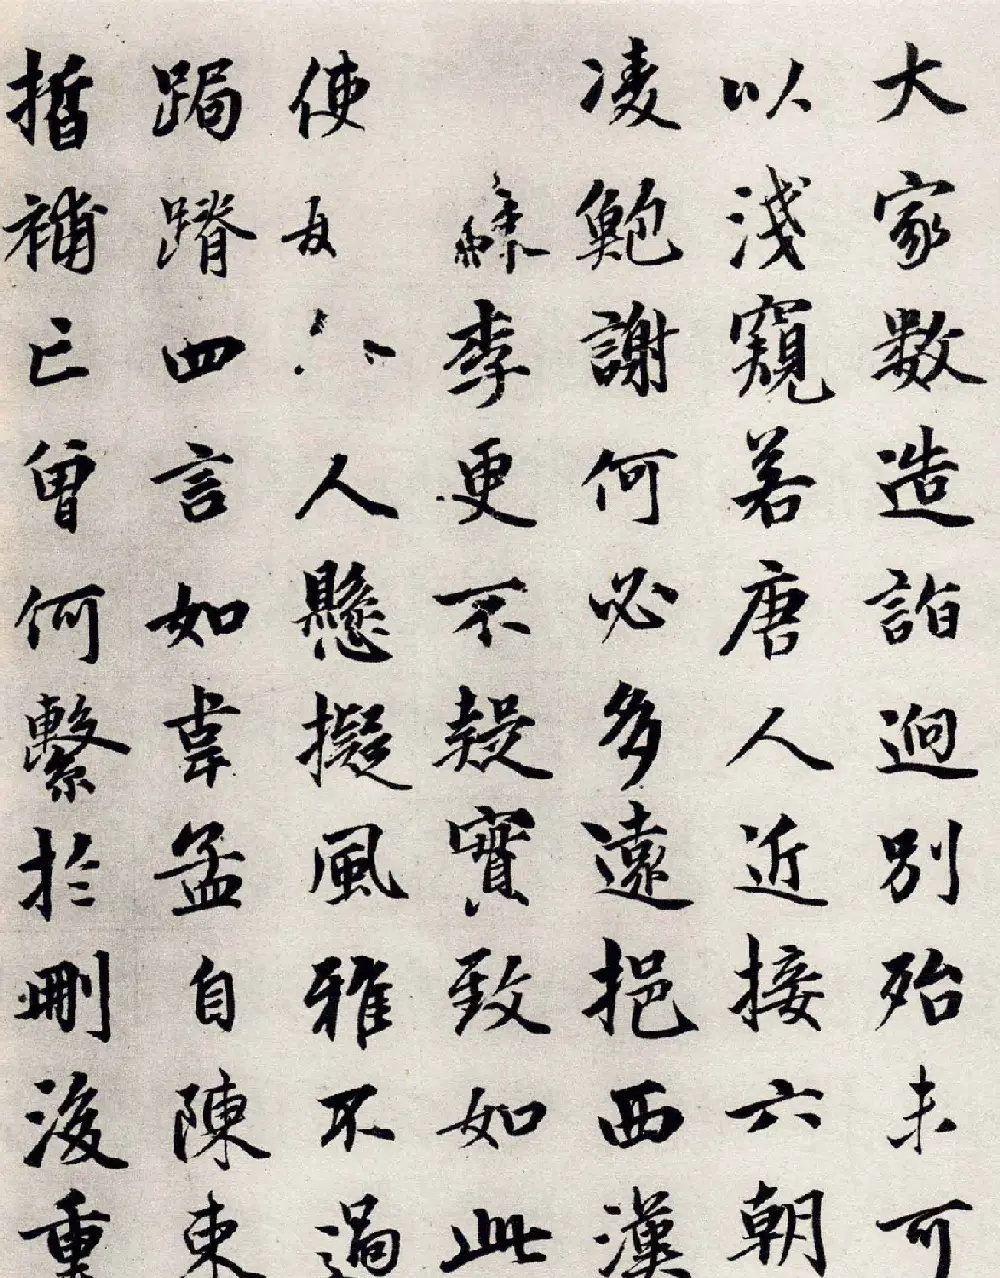 大家数造詣迥別殆未可
以淺窺若唐人近接六朝
凌鮑謝何必多遠挹西漢
蘇李更不疑寶致如此
使 人懸擬風雅不過
跼蹐四言如韋孟自陳束
晳補亡曾何繫於刪後重